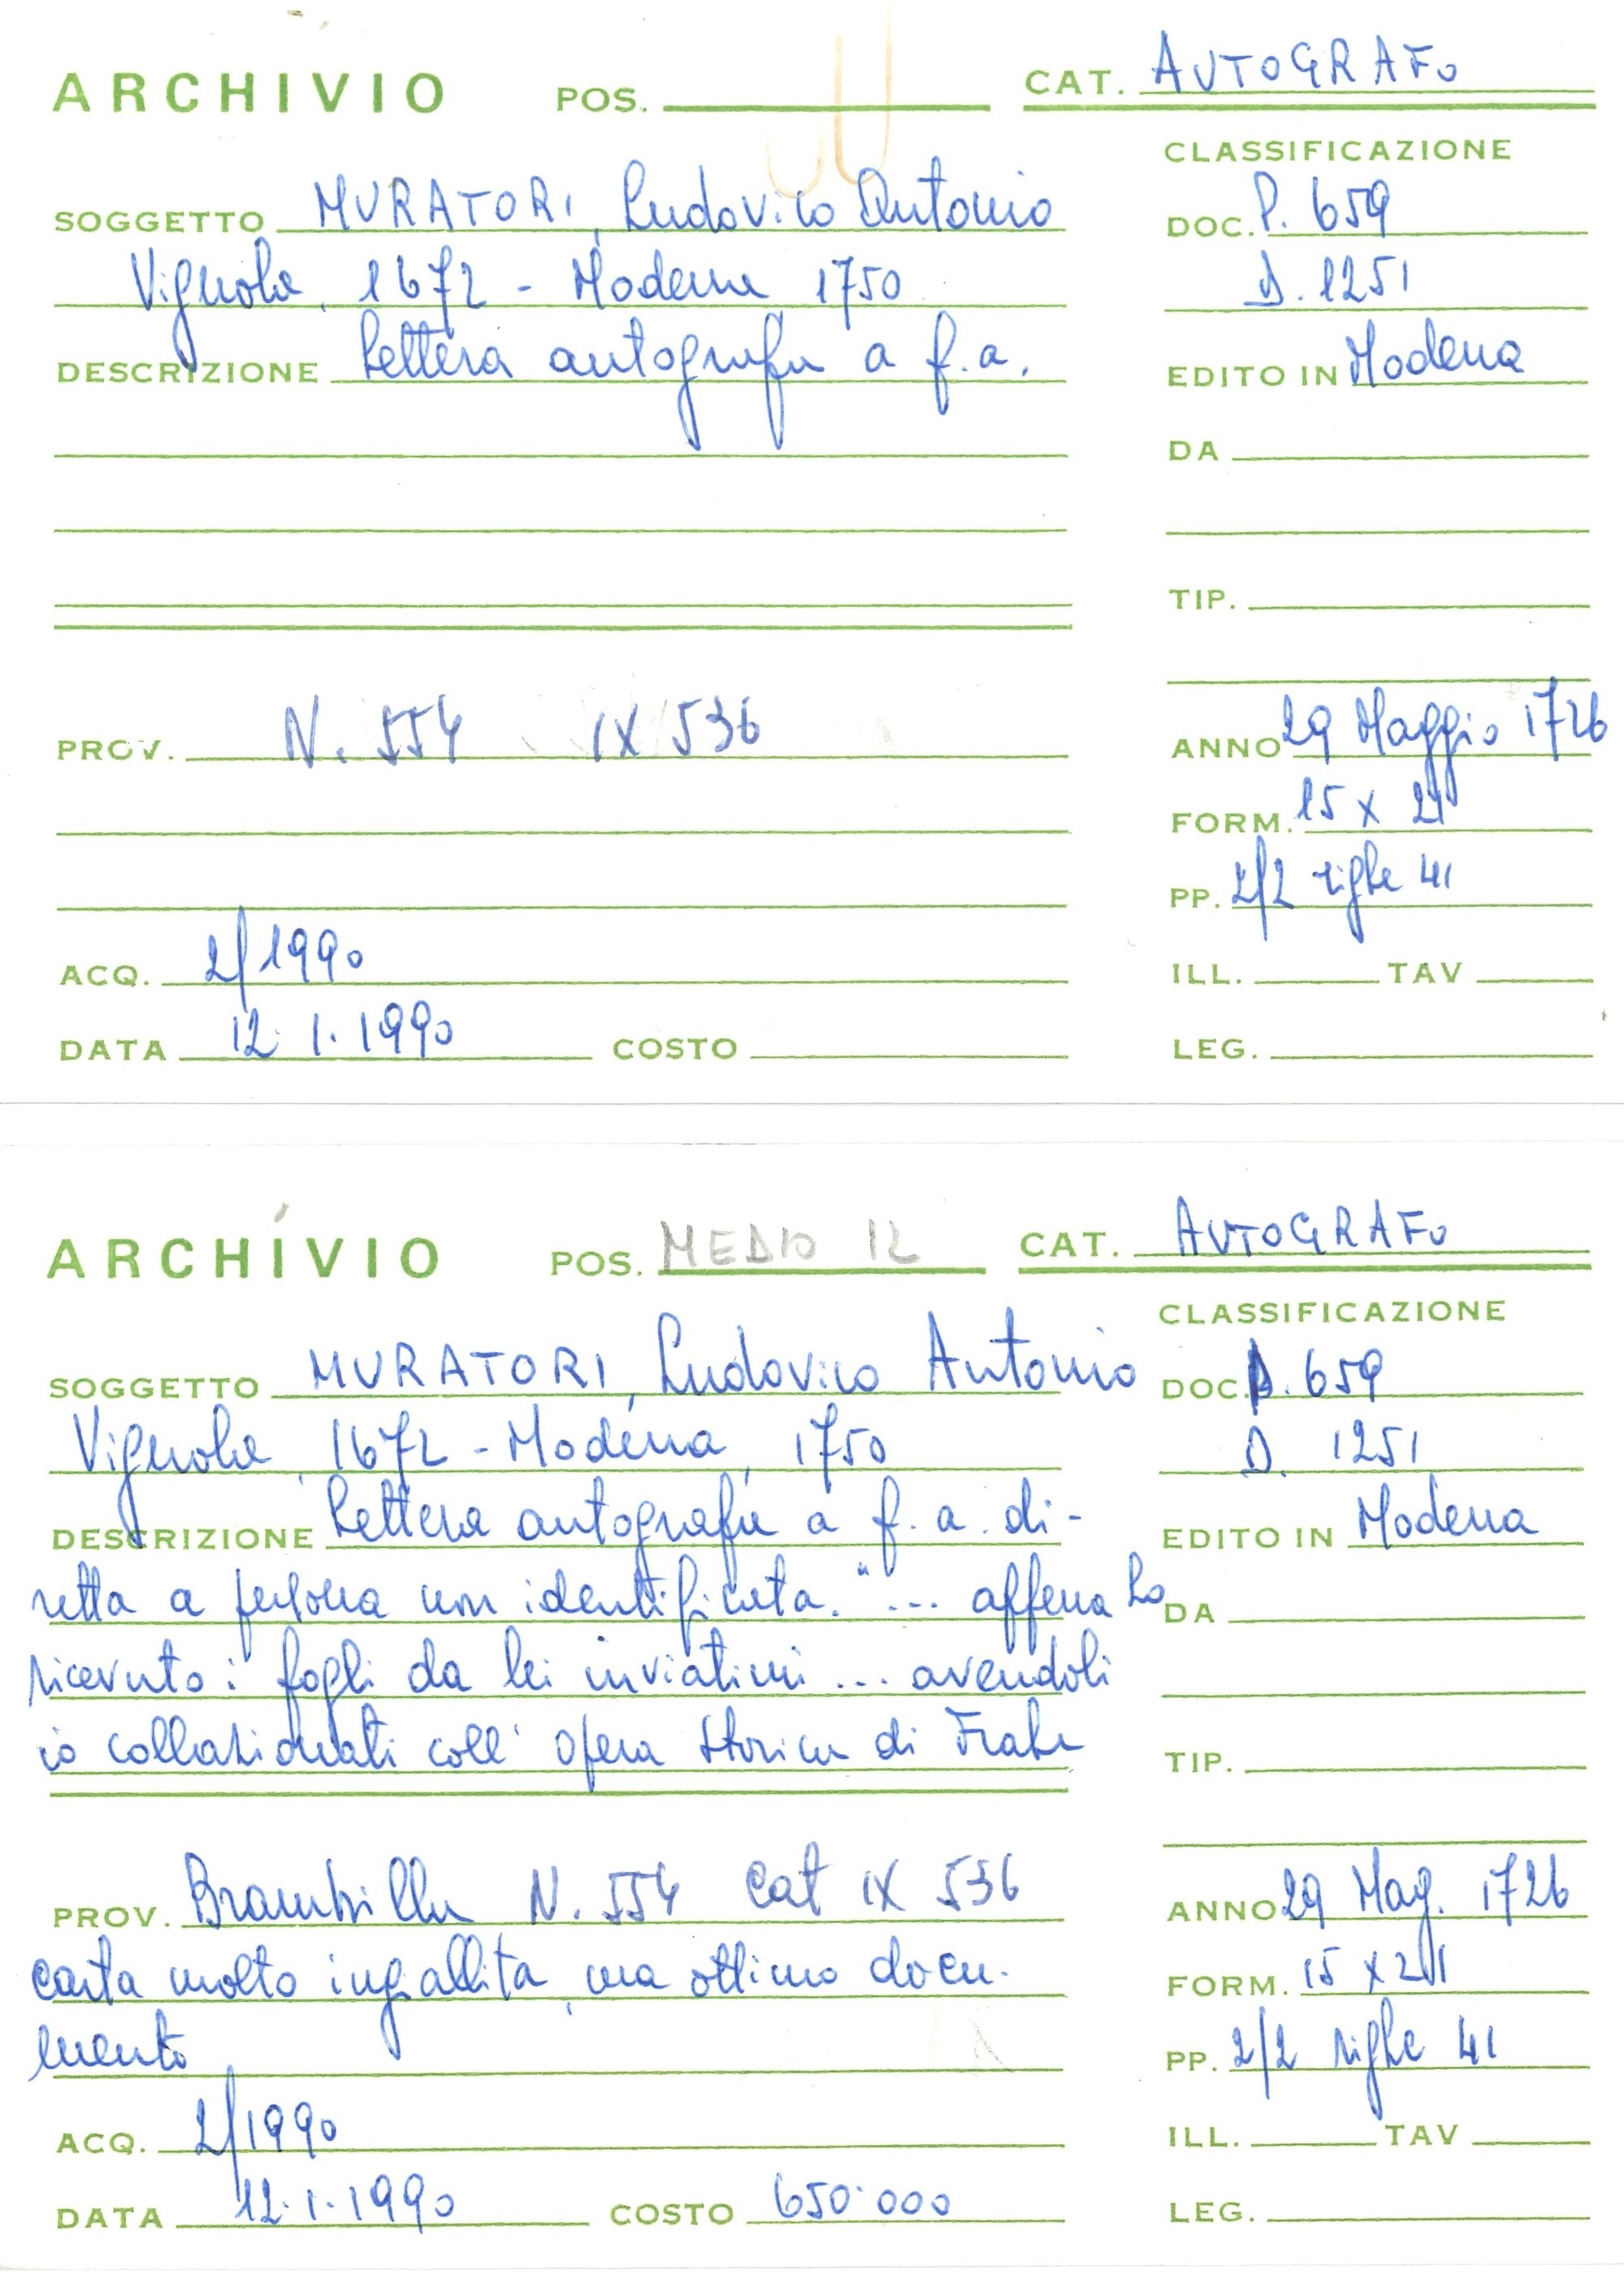 ARCHIVIO POS. CAT. AUTOGRAFO
CLASSIFICAZIONE
SOGGETTO MURATORI, Ludovico Antonio DOC. P. 659
Vignola, 1672 - Modena 1750 D. 1251
DESCRIZIONE Lettera autografa a f.a. EDITO IN Modena
DA
TIP.
PROV. N. 554 IX 536 ANNO 29 Maggio 1726
FORM. 15 x 21
PP. 2/2 righe 41
ACQ. 2/1990 ILL. TAV
DATA 12.1.1990 COSTO LEG.
ARCHIVIO POS. MEDIO 12 CAT. AUTOGRAFO
CLASSIFICAZIONE
SOGGETTO MURATORI, Ludovico Antonio DOC. P. 659
Vignola, 1672 - Modena, 1750 D. 1251
DESCRIZIONE Lettera autografa a f.a. di- EDITO IN Modena
retta a persona non identificata. "... appena ho DA
ricevuto i fogli da lei inviatimi ... avendoli
io collazionati coll' opera storica di Frate TIP.
PROV. Brambilla N. 554 Cat IX 536 ANNO 29 Mag. 1726
carta molto ingiallita, ma ottimo docu- FORM. 15 x 21
mento PP. 2/2 righe 41
ACQ. 2/1990 ILL. TAV
DATA 12.1.1990 COSTO 650.000 LEG.